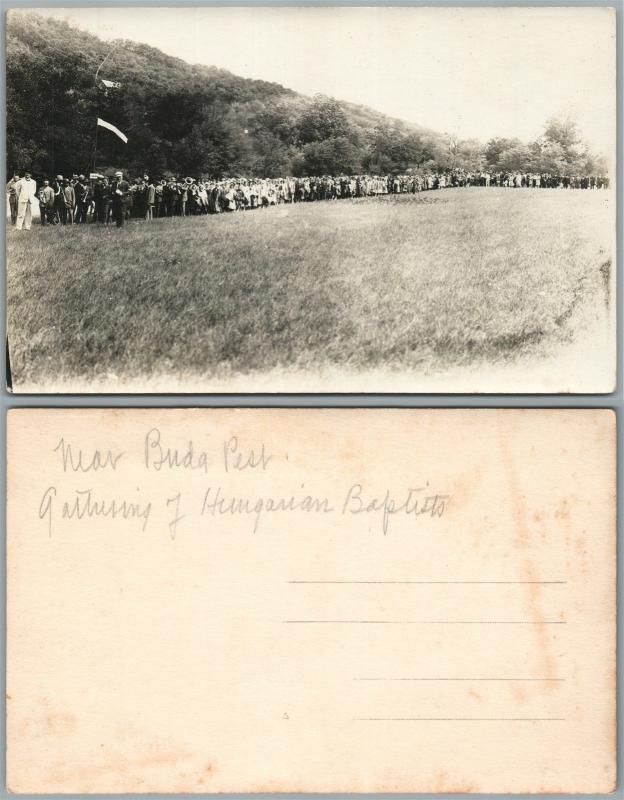 Near Buda Pest
Gathering of Hungarian Baptists